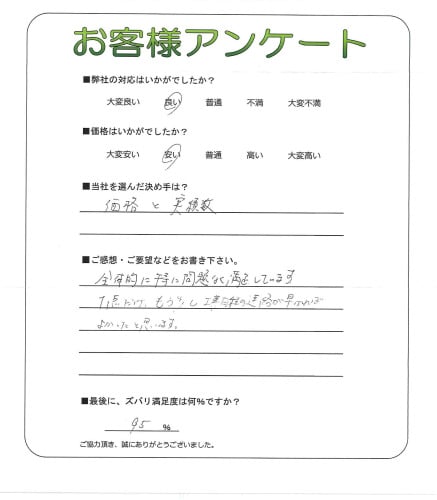 お客様アンケート
■弊社の対応はいかがでしたか？
大変良い 良い 普通 不満 大変不満
■価格はいかがでしたか？
大変安い 安い 普通 高い 大変高い
■当社を選んだ決め手は？
価格と実績数
■ご感想・ご要望などをお書き下さい。
全体的に特に問題なく満足しています
1点だけ、もう少し工事会社の連絡が早ければ
よかったと思います。
■最後に、ズバリ満足度は何％ですか？
95 ％
ご協力頂き、誠にありがとうございました。